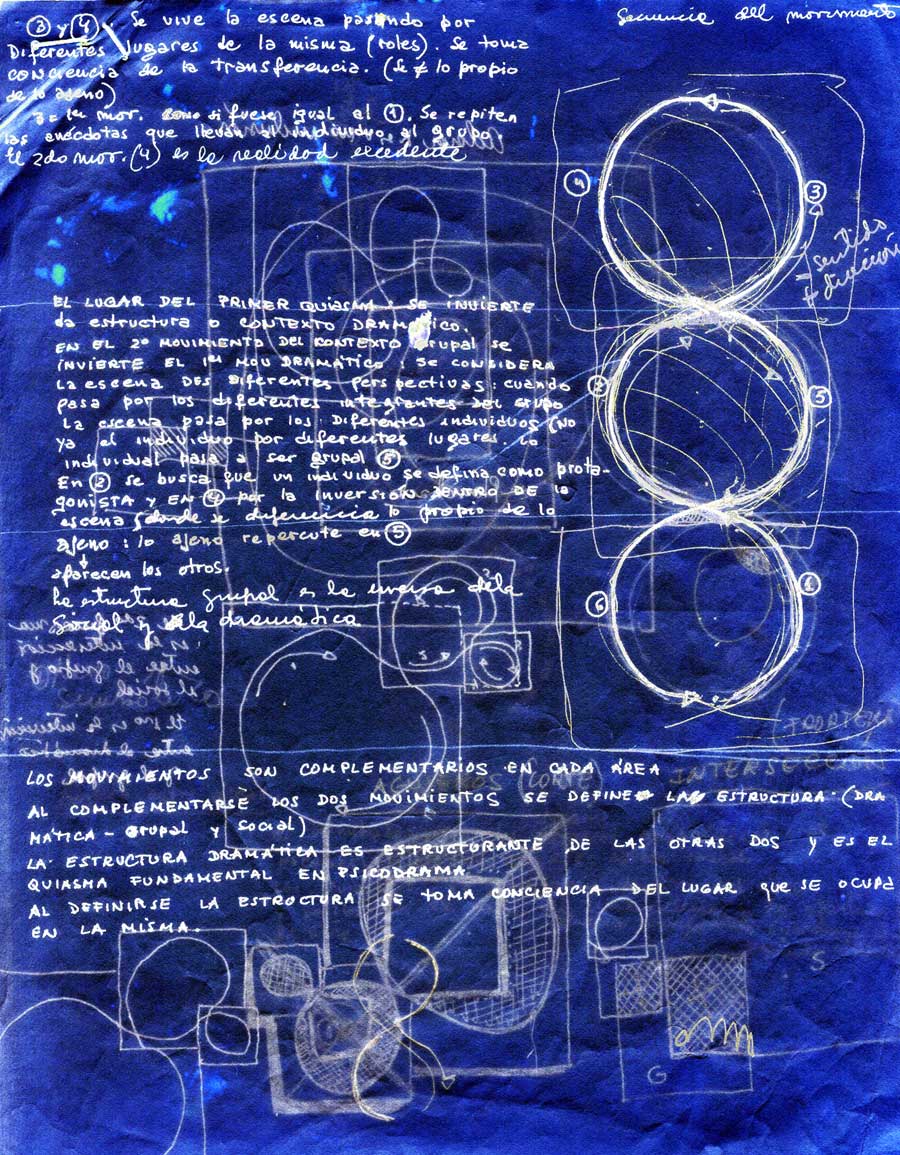 Secuencia del movimiento
③ y ④ Se vive la escena pasando por
Diferentes lugares de la misma (roles). Se toma
conciencia de la transferencia. (Se ≠ lo propio
de lo ajeno)
3 = 1er mov. como si fuese igual al ①. Se repiten
las anécdotas que llevan al individuo al grupo
El 2do mov. (4) es la realidad excedente
④
③
= sentido
≠ dirección
EL LUGAR DEL PRIMER QUIASMA: SE INVIERTE
la estructura o CONTEXTO DRAMÁTICO.
EN EL 2º MOVIMIENTO DEL CONTEXTO Grupal se
INVIERTE EL 1er MOV DRAMÁTICO SE CONSIDERA
La escena DES Diferentes perspectivas: cuando
pasa por los diferentes integrantes DEL GRUPO
La escena pasa por los Diferentes individuos (NO
ya el individuo por diferentes lugares. Lo
individual pasa a ser grupal ⑤
En ② se busca que un individuo se defina COMO prota-
gonista y EN ④ por la INVERSIÓN DENTRO DE la
escena donde se diferencia lo propio de lo
ajeno: lo ajeno repercute en ⑤
aparecen los otros.
La estructura grupal es la inversa de la
social y de la dramática
②
⑤
⑥
①
FRONTERA
INTERSECCIÓN
LOS MOVIMIENTOS SON COMPLEMENTARIOS EN CADA ÁREA
AL COMPLEMENTARSE LOS DOS MOVIMIENTOS SE DEFINE LA ESTRUCTURA (DRA
MÁTICA - Grupal y Social)
LA ESTRUCTURA DRAMÁTICA ES ESTRUCTURANTE DE LAS OTRAS DOS Y ES EL
QUIASMA FUNDAMENTAL EN PSICODRAMA
AL DEFINIRSE LA ESTRUCTURA SE TOMA CONCIENCIA DEL LUGAR que SE OCUPA
EN LA MISMA.
S
G